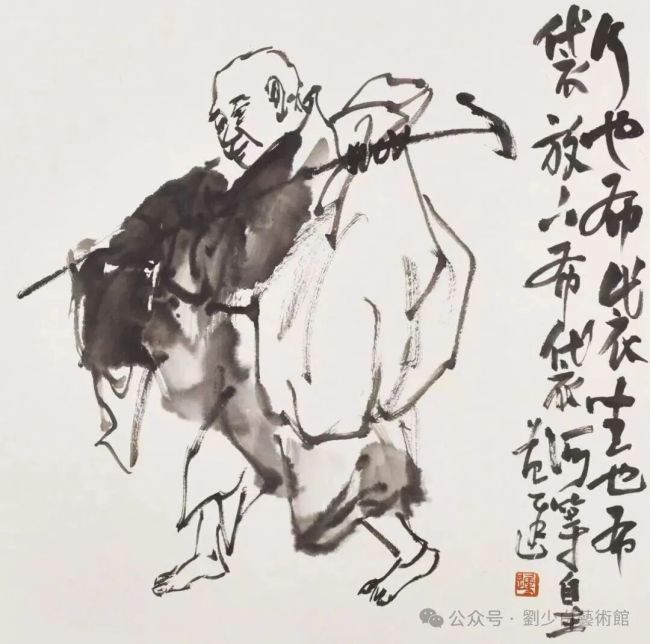 行也布袋坐也布
袋放下布袋何等自在
公众号 · 劉少白藝術館